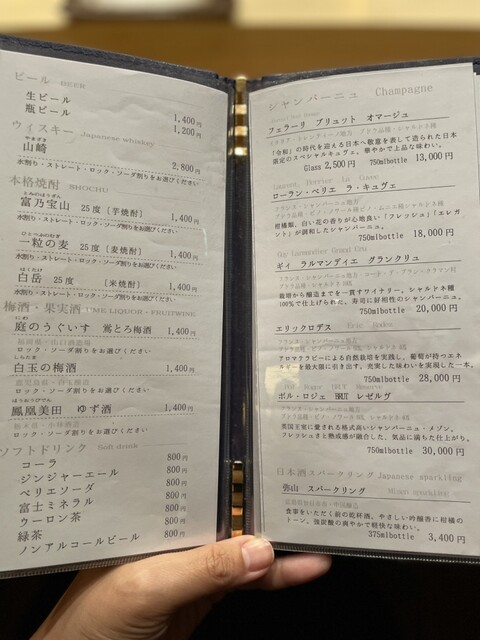 ビール BEER
生ビール 1,400円
瓶ビール 1,200円
ウィスキー Japanese whiskey
やまざき
山崎 2,800円
水割り・ストレート・ロック・ソーダ割りをお選びください
本格焼酎 SHOCHU
とみのほうざん
富乃宝山 25度〔芋焼酎〕 1,400円
水割り・ストレート・ロック・ソーダ割りをお選びください
ひとつぶのむぎ
一粒の麦 25度〔麦焼酎〕 1,400円
水割り・ストレート・ロック・ソーダ割りをお選びください
はくたけ
白岳 25度〔米焼酎〕 1,400円
水割り・ストレート・ロック・ソーダ割りをお選びください
梅酒・果実酒 UME LIQUOR・FRUITWINE
にわ
庭のうぐいす 鶯とろ梅酒 1,400円
福岡県・山口酒造場
ロック・ソーダ割りをお選びください
しらたま
白玉の梅酒 1,400円
鹿児島県・白玉醸造
ロック・ソーダ割りをお選びください
ほうおうびでん
鳳凰美田 ゆず酒 1,400円
栃木県・小林酒造
ロック・ソーダ割りをお選びください
ソフトドリンク Soft drink
コーラ 800円
ジンジャーエール 800円
ペリエソーダ 800円
富士ミネラル 800円
ウーロン茶 800円
緑茶 800円
ノンアルコールビール 800円
シャンパーニュ Champagne
フェラーリ ブリュット オマージュ
イタリア・トレンティーノ地方 アドラ品種・シャルドネ種
「令和」の時代を迎える日本へ敬意を表して造られた日本
限定のスペシャルキュヴェ。華やかで上品な味わい。
Glass 2,500円 750mlbottle 13,000円
ローラン・ペリエ ラ・キュヴェ
柑橘類、白い花の香りが心地良い「フレッシュ」「エレガ
ント」が調和したシャンパーニュ。
750mlbottle 18,000円
Guy Larmandier Grand Cru
ギィ ラルマンディエ グランクリュ
アドラ品種・シャルドネ100%
栽培から醸造までを一貫すワイナリー。シャルドネ種
100%で仕上げられた。寿司に好相性のシャンパーニュ。
750mlbottle 20,000円
エリックロデス Eric Rodez
アロマテラピーによる自然栽培を実践し、葡萄が持つエネ
ルギーを最大限に引き出す。充実した味わいを実現した一本。
750mlbottle 28,000円
Pol Roger BRUT Reserve
ポル・ロジェ BRUT レゼルヴ
英国王室に愛される格式高いシャンパーニュ・メゾン。
フレッシュさと熟成感が融合した、気品に満ちた仕上がり。
750mlbottle 30,000円
日本酒スパークリング Japanese sparkling
弥山 スパークリング Misen sparkling
広島県廿日市市・中国醸造
食事をいただく前の乾杯酒。やさしい吟醸香に柑橘の
トーン。強炭酸の爽やかで軽快な味わい。
375mlbottle 3,400円